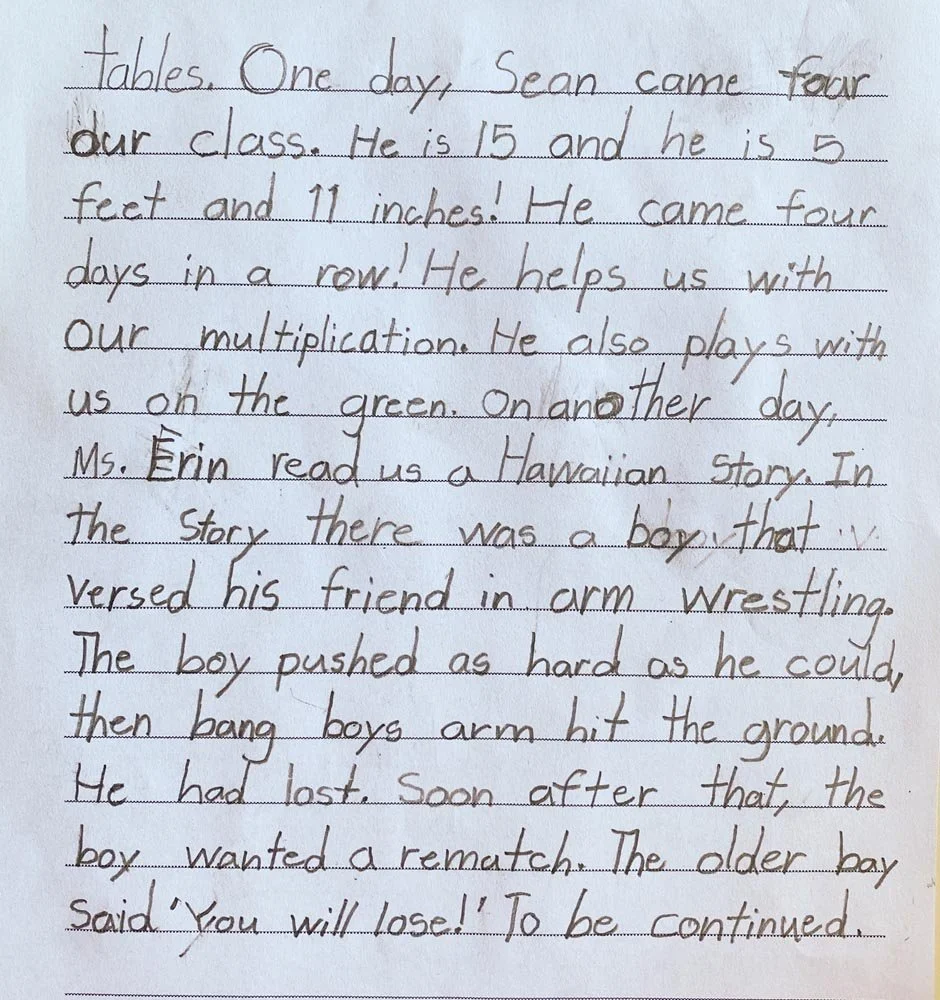 tables. One day, Sean came four
our class. He is 15 and he is 5
feet and 11 inches! He came four
days in a row! He helps us with
our multiplication. He also plays with
us on the green. On another day,
Ms. Erin read us a Hawaiian Story. In
the Story there was a boy that
versed his friend in arm wrestling.
The boy pushed as hard as he could,
then bang boys arm hit the ground.
He had lost. Soon after that, the
boy wanted a rematch. The older boy
said 'You will lose!' To be continued.